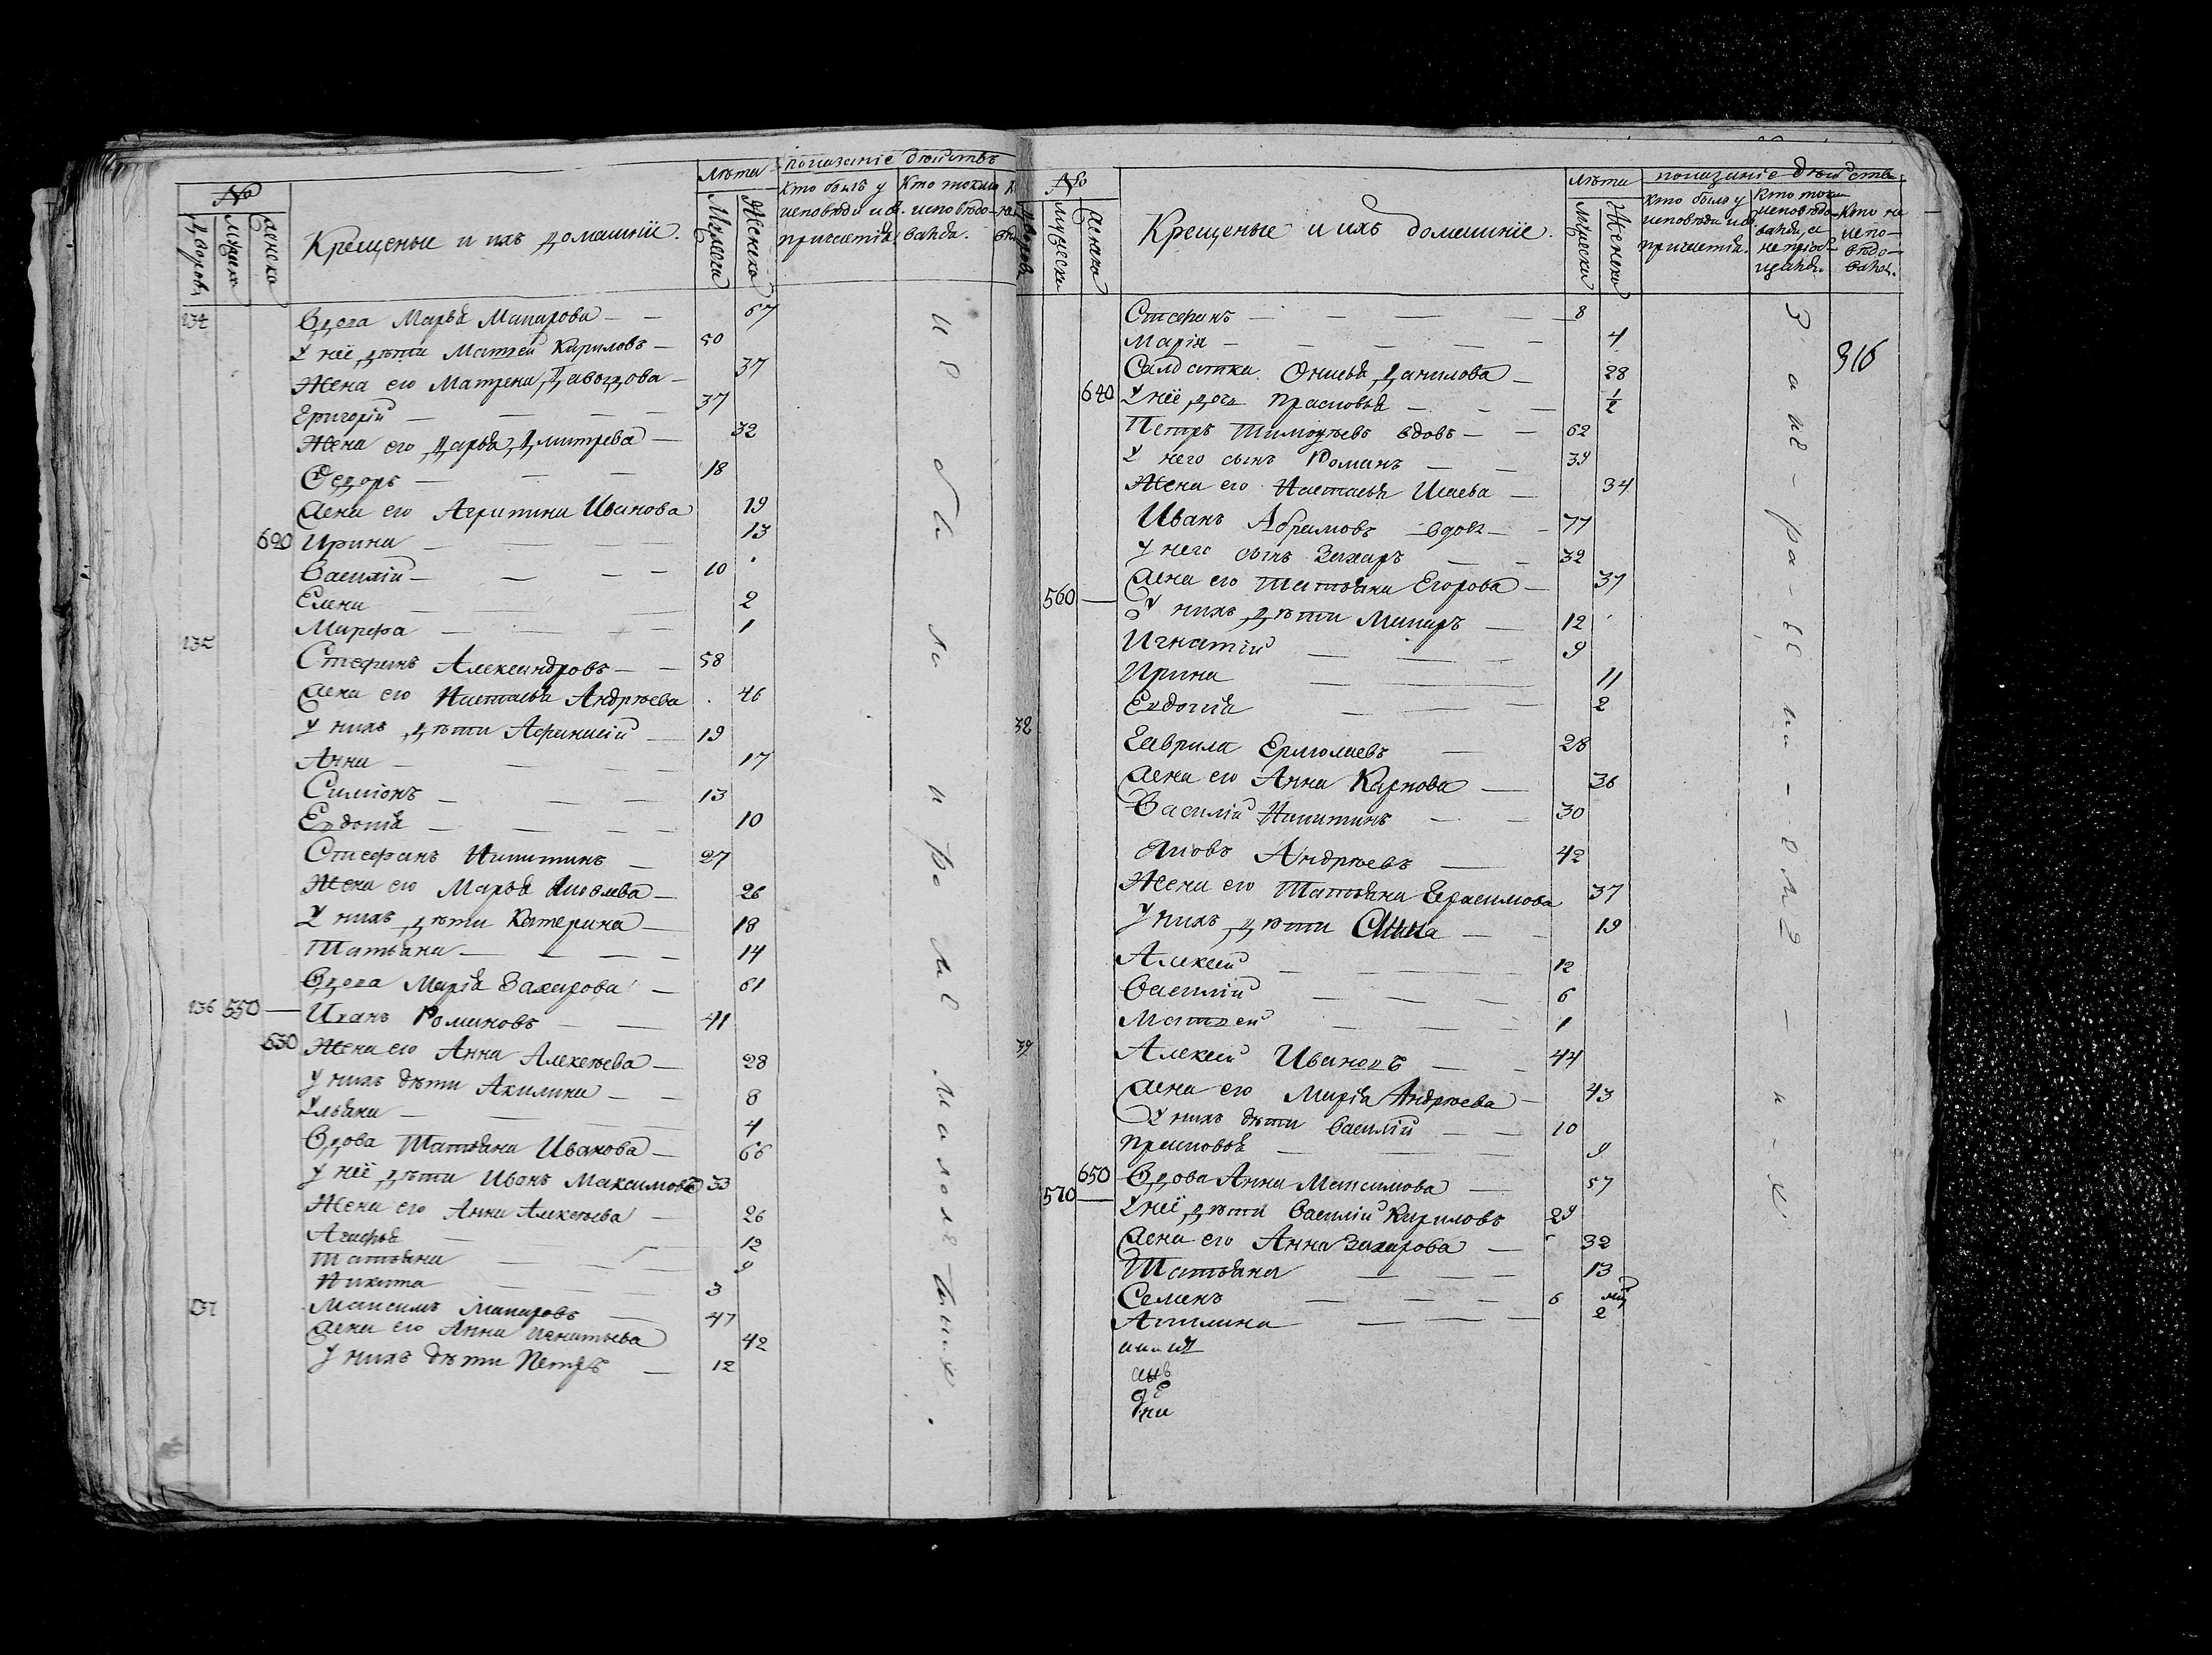 №
Дворовъ
Мужеска
Женска
Крещеные и ихъ домашніе.
Лѣта
Мужеска
Женска
показаніе дѣйствъ
Кто былъ у исповѣди и св. причастія
Кто токмо исповѣдованъ.
134 Вдова Марья Макарова — — 67
У неё дѣти Матвей Кириловъ — 50
Жена его Матрена Давыдова — 37
Григорій — — — — 37
Жена его Дарья Дмитрева — 32
Ѳедоръ — — — 18
Жена его Агрипина Иванова 19
620 Ирина — — — — 13
Василій — — — — 10
Елена — — — — 2
Марфа — — — — 1
135 Стефанъ Александровъ — — 58
Жена его Настасья Андрѣева 46
У нихъ дѣти Афанасій — 19
Анна — — — — 17
Симіонъ — — — 13
Евдокія — — — — 10
Стефанъ Никитинъ — 27
Жена его Марья — 26
У нихъ дѣти Катерина — 18
Татьяна — — — — 14
Вдова Марія Захарова — 61
136 550 — Иванъ Романовъ — — 41
630 Жена его Анна Алексѣева — 28
У нихъ дѣти Акилина — — 8
Ульяна — — — 4
Вдова Татьяна Иванова — 66
У неё дѣти Иванъ Максимовъ 33
Жена его Анна Алексѣева — 26
Агафья — — — 12
Татьяна — — — 9
Никита — — — 3
137 Максимъ Макаровъ — 47
Жена его Анна Игнатьева 42
У нихъ дѣти Петръ — 12
и не были и ро ле малолетних.
№
Дворовъ
Мужеска
Женска
Крещеные и ихъ домашніе.
Лѣта
Мужеска
Женска
показаніе дѣйствъ
Кто былъ у исповѣди и св. причастія.
Кто токмо исповѣдованъ, а не пріобщанъ.
Кто не исповѣдованъ.
316
Стефанъ — — — — 8
Марія — — — — — 4
Салдатка Онисья Данилова — 28
640 У неё дочь Прасковья — — — 1/2
Петръ Тимофѣевъ вдовъ — — 62
У него сынъ Романъ — — 39
Жена его Настасья Исаева — 34
Иванъ Абрамовъ вдовъ — — 77
У него сынъ Захаръ — — 32
Жена его Татьяна Егорова — 37
560 — У нихъ дѣти Макаръ — 12
Игнатій — — — 9
Ирина — — — 11
Евдокія — — — 2
38 Гаврила Ермолаевъ — 28
Жена его Анна Карпова — 36
Василій Никитинъ — — 30
Яковъ Андрѣевъ — 42
Жена его Татьяна Герасимова 37
У нихъ дѣти — — 19
Алексей — — — — 12
Василій — — — — 6
Матвей — — — 1
39 Алексей Ивановъ — — 44
Жена его Марія Андрѣева — 43
У нихъ дѣти Василій — — 10
Прасковья — — — 9
650 Вдова Анна Максимова — 57
570 — У неё дѣти Василій Кириловъ 29
Жена его Анна Захарова — 32
Татьяна — — — 13
Семенъ — — — 6
Акилина — — — 2